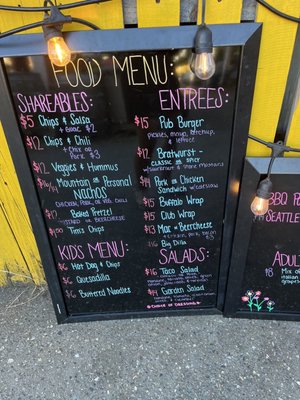 FOOD MENU:
SHAREABLES:
$5 Chips & Salsa
+ guac $2
$12 Chips & Chili
+ mix or
Pork $3
$12 Veggies & Hummus
Mountain or Personal
NACHOS
CHICKEN, PORK, OR VEG. CHILI
$12 Baked Pretzel
MUSTARD OR BEERCHEESE
Tim's Chips
KID'S MENU:
$6 Hot Dog & Chips
$6 Quesadilla
$6 Buttered Noodles
ENTREES:
$15 Pub Burger
pickles, mayo, ketchup,
& lettuce
$12 Bratwurst
- classic or spicy
w/ sauerkraut & stone mustard
$14 Pork or Chicken
Sandwich w/ coleslaw
$15 Buffalo Wrap
$15 Club Wrap
$13 Mac & Beercheese
+ ham, pork, bacon
Big Dilla
SALADS:
$16 Taco Salad
$14 Garden Salad
* CHOICE OF DRESSING *
BBQ
SEATTLE
ADULT
$8 Mix